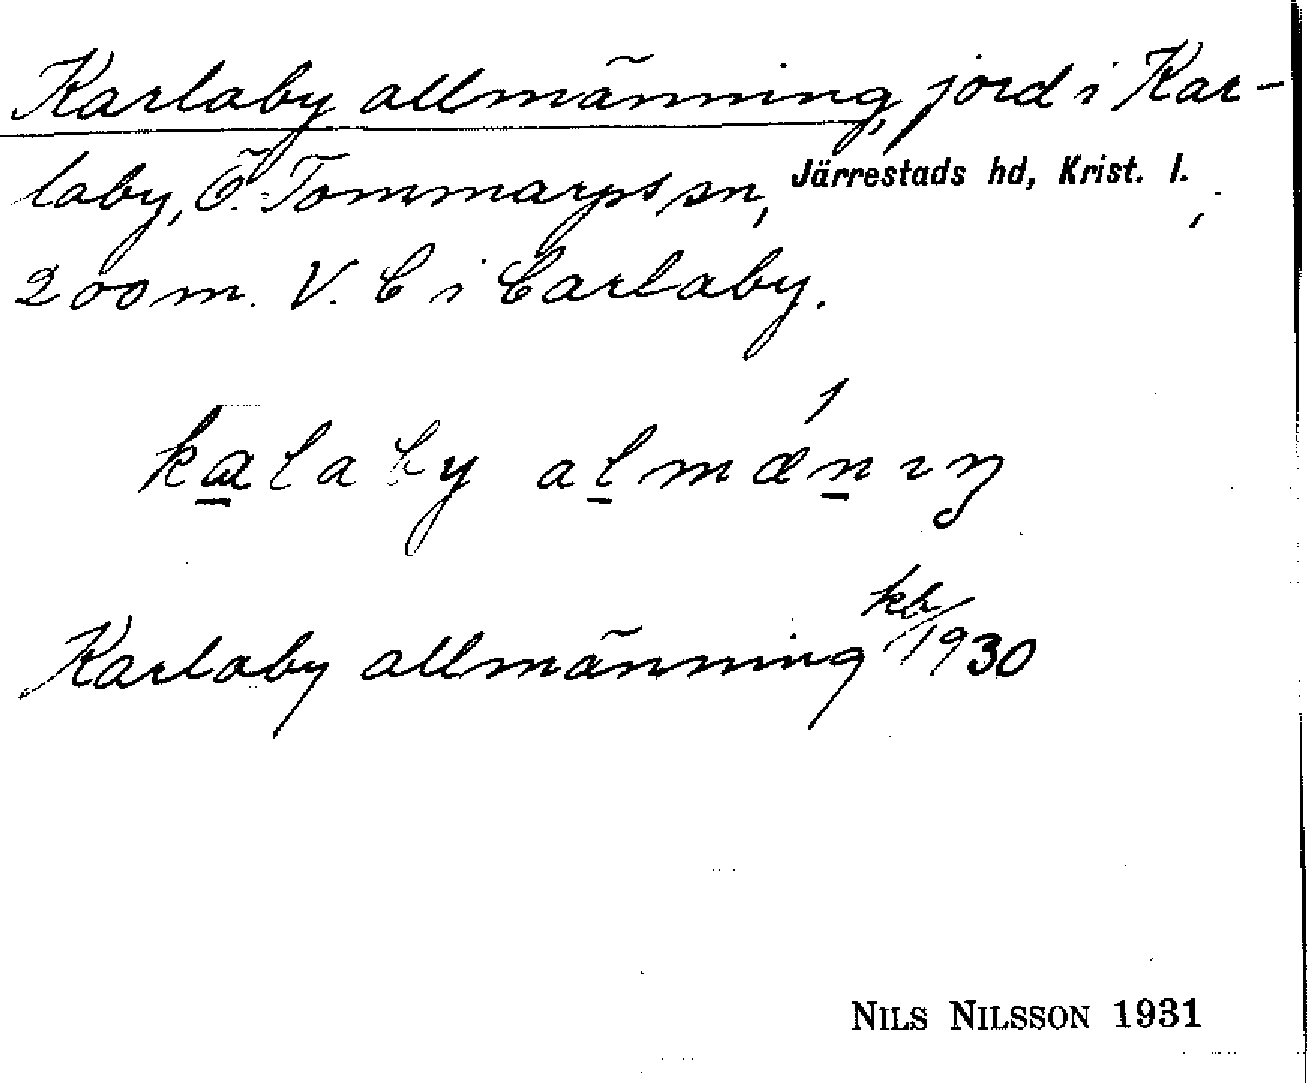 Karlaby allmänning, jord i Kar-
laby, Ö. Tommarps sn, Järrestads hd, Krist. l.;
200 m. V. C i Carlaby.
kalaby almænıŋ
Karlaby allmänning kb/1930
NILS NILSSON 1931